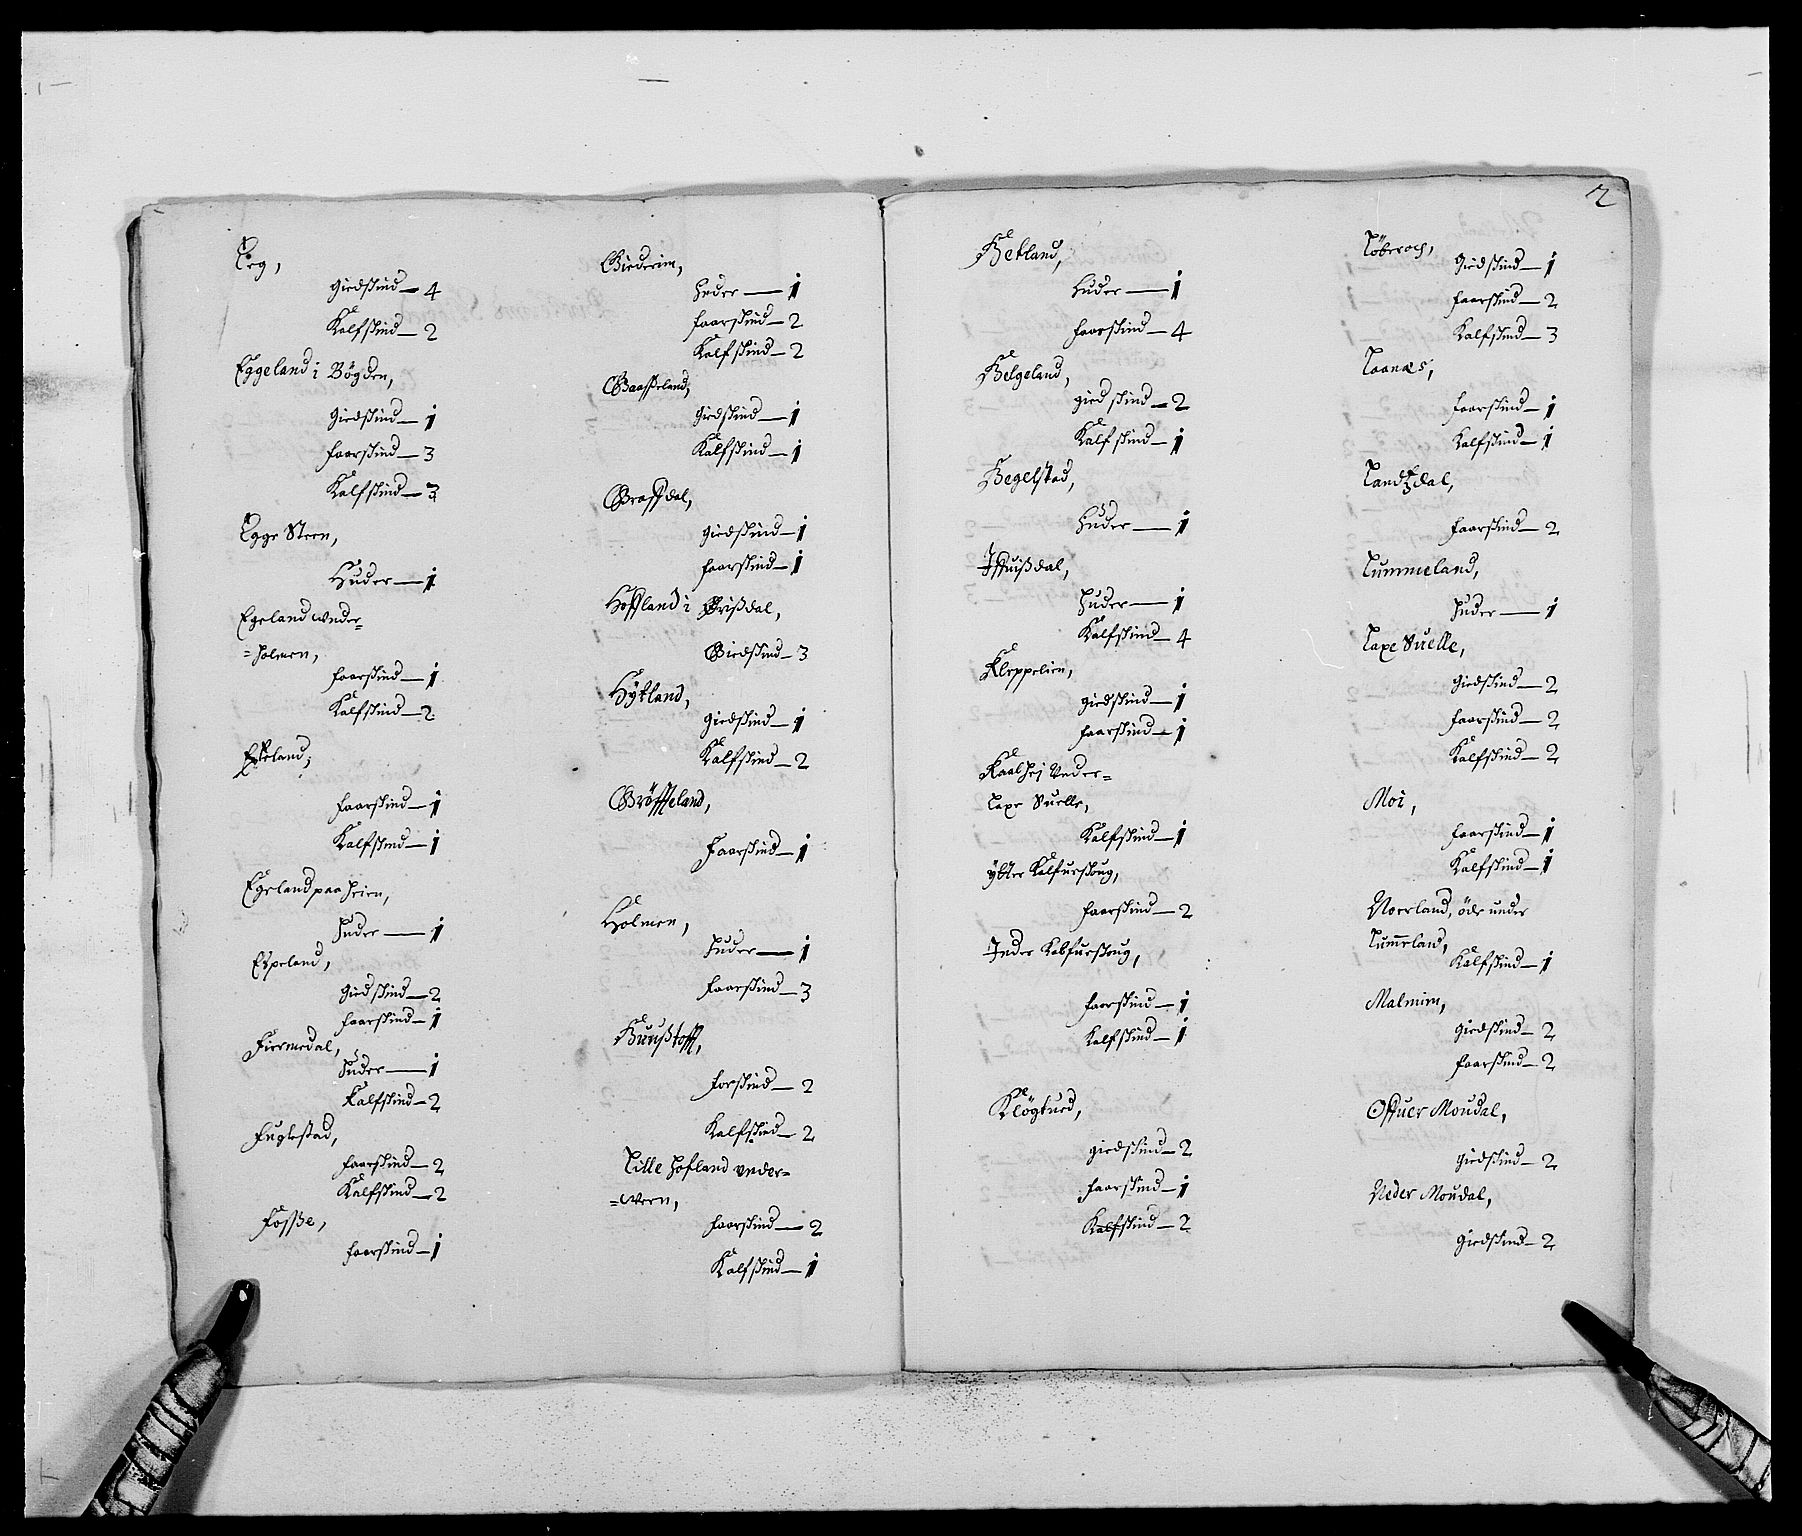 Eeg,
Giedskind — 4
Kalfskind — 2
Eggeland i Bögden,
Giedskind — 1
faarskind — 3
Kalfskind — 3
Egge Steen,
Huder — 1
Egeland under=
=holmen,
faarskind — 1
Kalfskind — 2
Eikeland,
faarskind — 1
Kalfskind — 1
Egeland paa heien,
Huder — 1
Espeland,
Giedskind — 2
faarskind — 1
Fiermedal,
Huder — 1
Kalfskind — 2
Fuglestad,
faarskind — 2
Kalfskind — 2
Fosse,
faarskind — 1
Giederim,
Huder — 1
faarskind — 2
Kalfskind — 2
Gaasseland,
Giedskind — 1
Kalfskind — 1
Graffdal,
Giedskind — 1
faarskind — 1
Hoffland i Grisdal,
Giedskind — 3
Hÿtland,
Giedskind — 1
Kalfskind — 2
Gröffteland,
Faarskind — 1
Holmen,
Huder — 1
Faarskind — 3
forskind — 2
Kalfskind — 2
Lille Hofland under=
=ween,
faarskind — 2
Kalfskind — 1
2
Hetland,
Huder — 1
faarskind — 4
Helgeland,
gied skind — 2
Kalf skind — 1
Hegelstad,
Huder — 1
Huder — 1
Kalfskind — 4
Kleppelien,
giedskind — 1
faarskind — 1
Kaalhej Under=
Laxe Suelle,
Kalfskind — 1
faarskind — 2
faarskind — 1
Kalfskind — 1
Klögtued,
giedskind — 2
faarskind — 1
Kalfskind — 2
Giedskind — 1
faarskind — 2
Kalfskind — 3
Laanæs,
faarskind — 1
Kalfskind — 1
Landtzdal,
faarskind — 2
Lummeland,
Huder — 1
Laxe Suelle,
Giedskind — 2
faarskind — 2
Kalfskind — 2
Moi,
faarskind — 1
Kalfskind — 1
Noerland, öde under
Lumeland,
Kalfskind — 1
Malmim,
giedskind — 2
faarskind — 2
Offuer Moudal,
Giedskind — 2
Neder Moudal,
Giedskind — 2